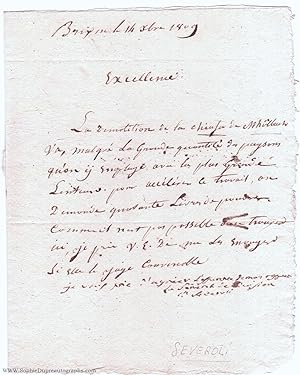 Brixen le 14 Xbre 1809
Excellence
La démolition de la chiusa de Mhülbach
Va, malgré la Grande quantité de paysans
qu'on y employe avec les plus Grande
pour accélérer le travail, on
demande quarante
Comment n'est pas possible de trouver
ici, je prie V. E. de me les Envoyer
Si elle le juge Convenable
je vous prie d'agréer
le Général de Division
Severoli
SEVEROLI
www.SophieDupreautographs.com